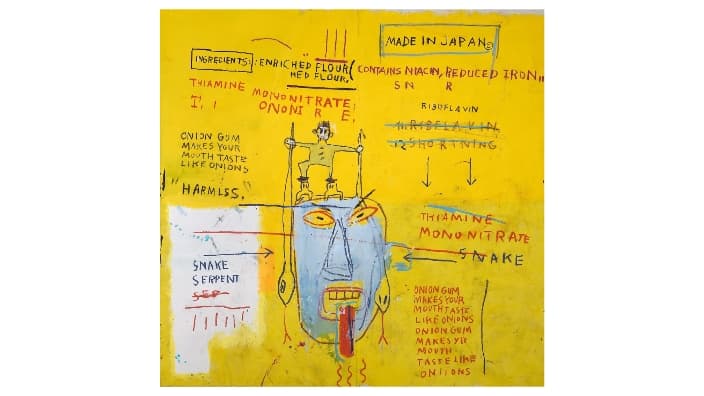 MADE IN JAPAN©
INGREDIENTS: ENRICHED FLOUR (CONTAINS NIACIN, REDUCED IRON,,
HED FLOUR,
S N R
THIAMINE MONONITRATE,
I, I ONONI R E,
RIBOFLAVIN
11. RIBFLAVIN
12 SHORTNING
ONION GUM
MAKES YOUR
MOUTH TASTE
LIKE ONIONS
"HARMLSS,"
THIAMINE
MONONITRATE
SNAKE
SNAKE
SERPENT
SEP
ONION GUM
MAKES YOUR
MOUTH TASTE
LIKE ONIONS
ONION GUM
MAKES YR
MOUTH
TASTE LIKE
ONIONS